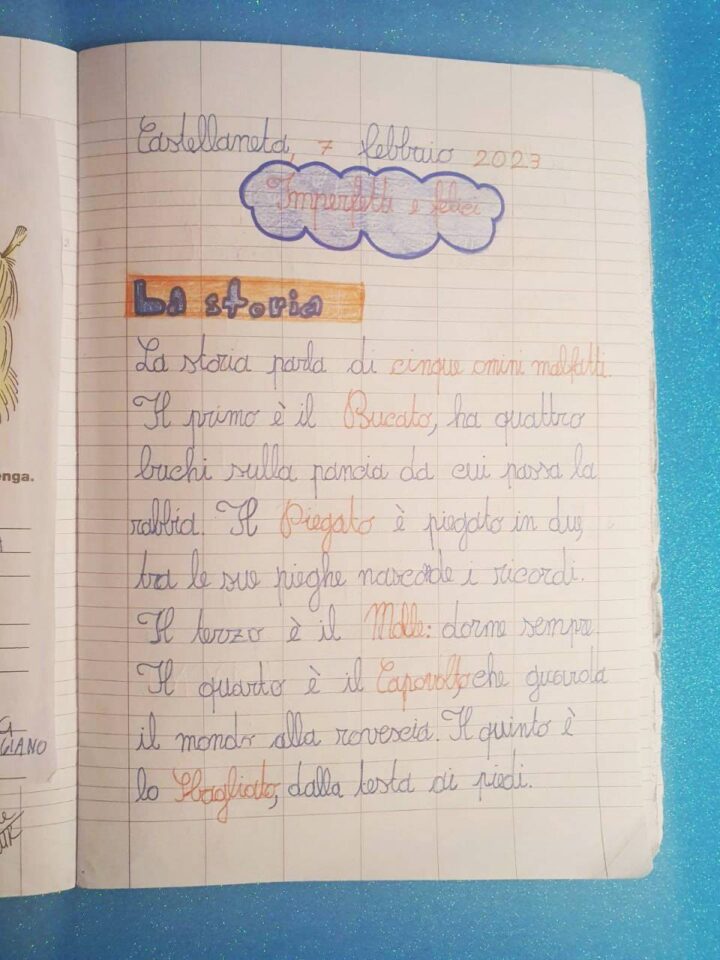 Castellaneta, 7 febbraio 2023
Imperfetti e felici
La storia
La storia parla di cinque omini malfatti.
Il primo è il Bucato, ha quattro
buchi sulla pancia da cui passa la
rabbia. Il Piegato è piegato in due,
tra le sue pieghe nasconde i ricordi.
Il terzo è il Molle: dorme sempre.
Il quarto è il Capovolto, che guarda
il mondo alla rovescia. Il quinto è
lo Sbagliato, dalla testa ai piedi.
nga.
GIANO